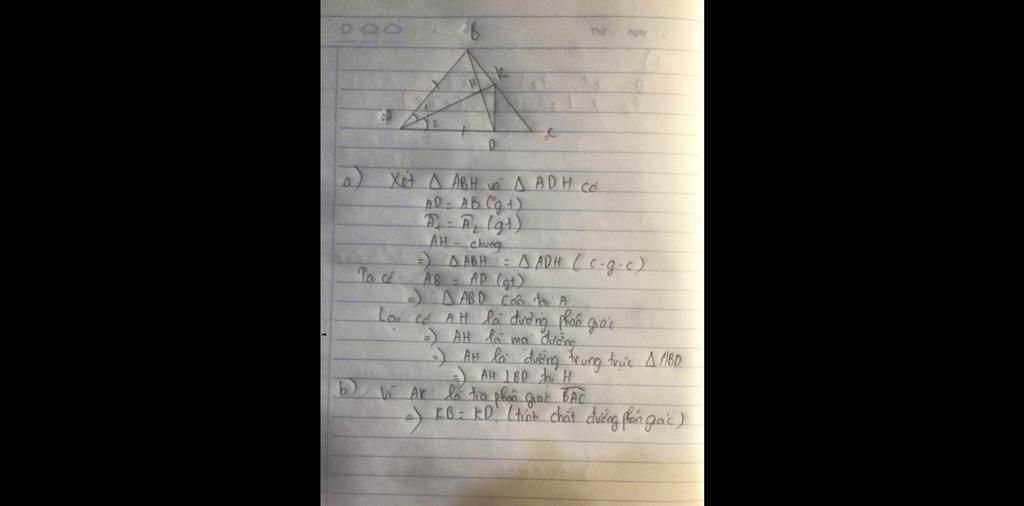 Thứ ngày
B
K
H
A 1
2
D
C
a) Xét Δ ABH và Δ ADH có
AD = AB (gt)
Â1 = Â2 (gt)
AH - chung
=) Δ ABH = Δ ADH ( c-g-c)
Ta có AB = AD (gt)
=) Δ ABD cân tại A
Lại có AH là đường phân giác
=) AH là mai đường
=) AH là đường trung trực Δ ABD
=) AH ⊥ BD tại H
b) Vì AK là tia phân giác BAC
=) KB = KD. (tính chất đường phân giác)